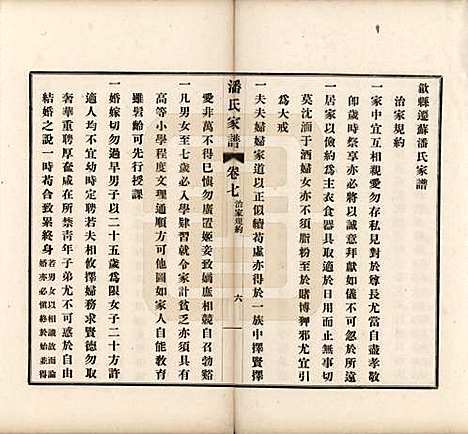 歙縣遷蘇潘氏家譜
治家規約
一家中宜相親愛勿存私見對於尊長尤當自盡孝敬
卽歲時祭享亦當誠敬致獻如儀不可忽於所遠
一居家以儉約爲主衣食器具取適於日用而止切
莫沈湎于酒婦女亦不須脂粉至於賭博狎邪尤宜引
爲大戒
一夫夫婦婦家道以正似續苟虛亦得於一族中擇賢擇
潘氏家譜
卷七
治家規約
六
愛非萬不得已愼勿廣置姬妾致嫡庶相競自召勃谿
一凡男女至七歲必入學肄習就令家計貧乏亦須具有
高等小學程度文理通順方可他圖如家人自能教育
雖髫齡可先行授課
一婚嫁切勿過早男子以二十五歲爲限女子二十方爲
適人均不宜定聘若夫相攸擇婦務求賢德勿取
奢華重聘厚奩或在所禁靑年子弟尤不可惑於自由
結婚之說一時苟合致累終身
若男女以相識故而論婚亦必愼終於始並得